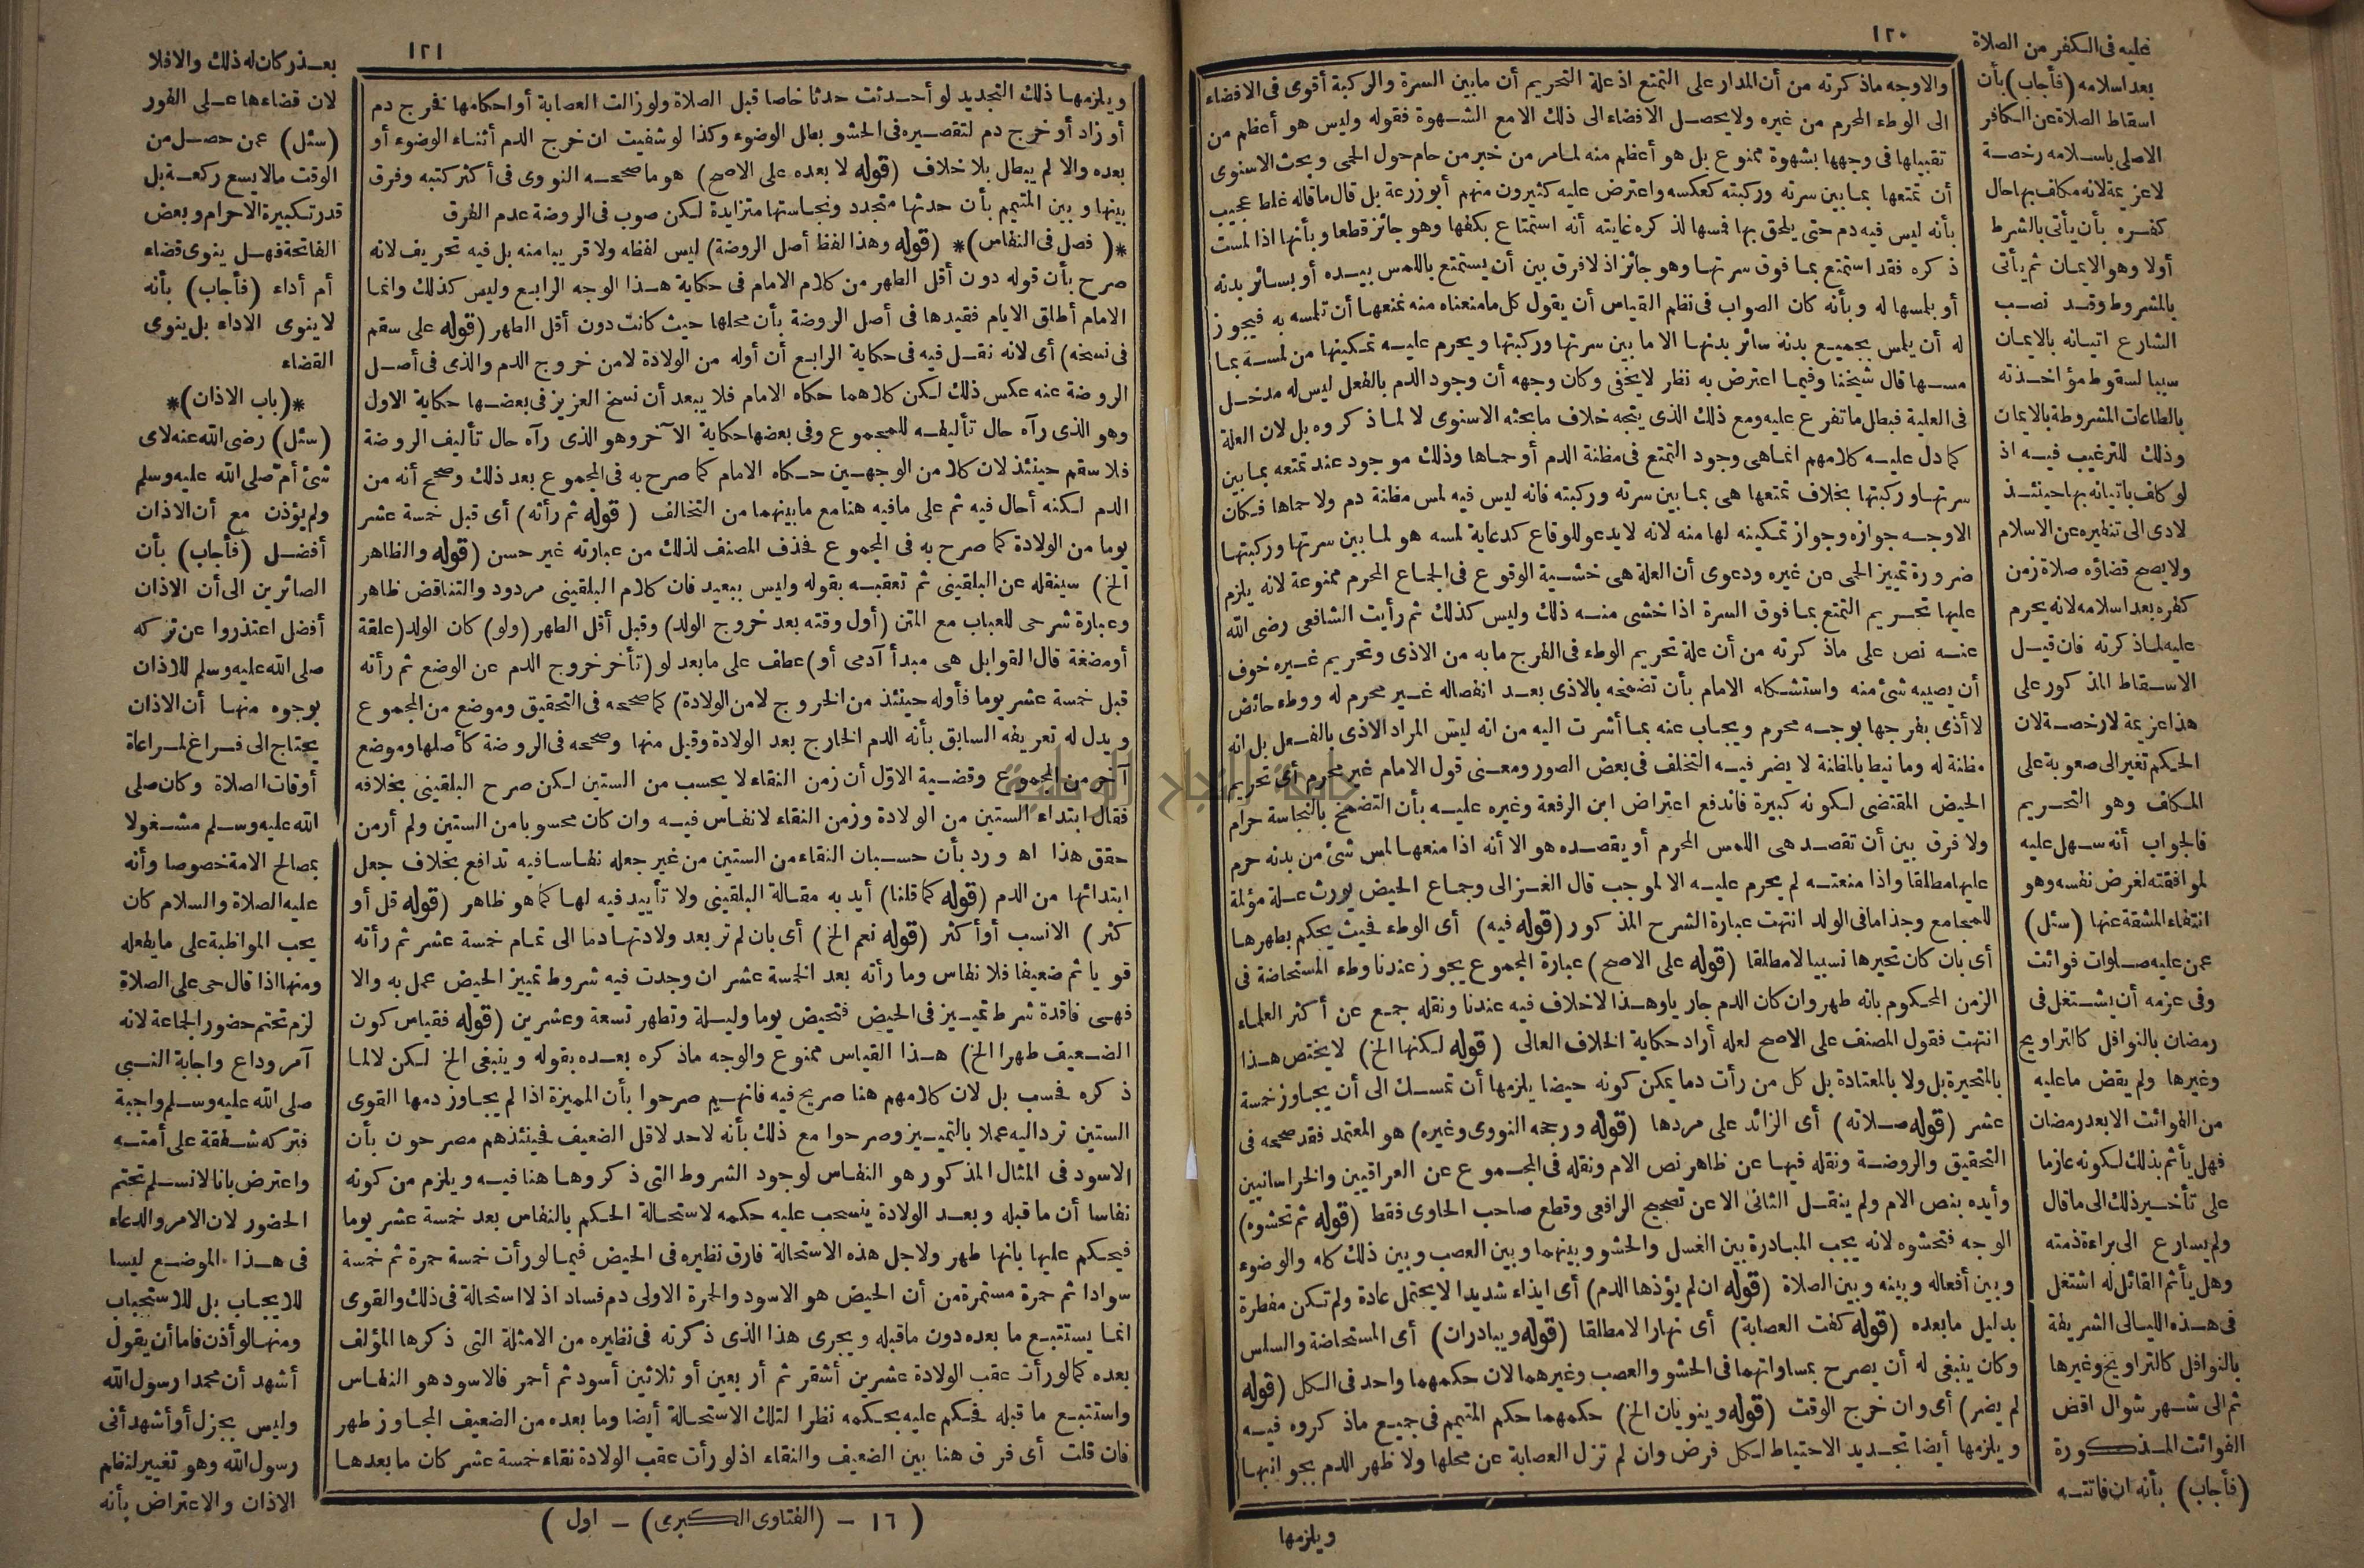 ١٢٠
والاوجه ماذكرته من أن المدار على التمتع اذ علة التحريم أن مابين السرة والركبة أقوى فى الافضاء
الى الوطء المحرم من غيره ولا يحصل الافضاء الى ذلك الا مع الشهوة فقوله وليس هو أعظم من
تقبيلها فى وجهها بشهوة ممنوع بل هو أعظم منه لمامر من خبر من حام حول الحمى وبحث الاسنوى
أن تمتعها بمابين سرته وركبته كعكسه واعترض عليه كثيرون منهم أبو زرعة بل قال ماقاله غلط عجيب
بأنه ليس فيه دم حتى يلحق بها فمسها لذكره غايته أنه استمتاع بكفها وهو جائز قطعا وبأنها اذا لمست
ذكره فقد استمتع بمافوق سرتها وهو جائز اذ لافرق بين أن يستمتع باللمس بيده أو بسائر بدنه
أو بلمسها له وبأنه كان الصواب فى نظم القياس أن يقول كل مامنعناه منه نمنعها أن تلمسه به فيجوز
له أن يلمس بجميع بدنه سائر بدنها الا ما بين سرتها وركبتها ويحرم عليه تمكينها من لمسه بما
مسها قال شيخنا وفيما اعترض به نظر لا يخفى وكان وجهه أن وجود الدم بالفعل ليس له مدخل
فى العلية فبطل ماتفرع عليه ومع ذلك الذى يتجه خلاف مابحثه الاسنوى لا لماذكروه بل لان العلة
كما دل عليه كلامهم انماهى وجود التمتع فى مظنة الدم أوحماها وذلك موجود عند تمتعه بمابين
سرتها وركبتها بخلاف تمتعها هى بما بين سرته وركبته فانه ليس فيه لمس مظنة دم ولاحماها فكان
الاوجه جوازه وجواز تمكينه لها منه لانه لا يدعو للوقاع كدعاية لمسه هو لما بين سرتها وركبتها
ضرورة تمييز الحمى عن غيره ودعوى أن العلة هى خشية الوقوع فى الجماع المحرم ممنوعة لانه يلزم
عليها تحريم التمتع بمافوق السرة اذا خشى منه ذلك وليس كذلك ثم رأيت الشافعى رضى الله
عنه نص على ماذكرته من أن علة تحريم الوطء فى الفرج مابه من الاذى وتحريم غيره خوف
أن يصيبه شئ منه واستشكله الامام بأن تضمخه بالاذى بعد انفصاله غير محرم له ووطء حائض
لا أذى بفرجها بوجه محرم ويجاب عنه بما أشرت اليه من انه ليس المراد الاذى بالفعل بل انه
مظنة له ومانيط بالمظنة لا يضر فيه التخلف فى بعض الصور ومعنى قول الامام غير محرم أى تحريم
الحيض المقتضى لكونه كبيرة فاندفع اعتراض ابن الرفعة وغيره عليه بأن التضمخ بالنجاسة حرام
ولا فرق بين أن تقصد هى اللمس المحرم أو يقصده هو الا أنه اذا منعها لمس شئ من بدنه حرم
عليها مطلقا واذا منعته لم يحرم عليه الا لموجب قال الغزالى وجماع الحيض يورث علة مؤلمة
للمجامع وجذاما فى الولد انتهت عبارة الشرح المذكور (قوله فيه) أى الوطء فحيث يحكم بطهرها
أى بان كان تحيرها نسبيا لامطلقا (قوله على الاصح) عبارة المجموع يجوز عندنا وطء المستحاضة فى
الزمن المحكوم بانه طهر وان كان الدم جاريا وهذا لاخلاف فيه عندنا ونقله جمع عن أكثر العلماء
انتهت فقول المصنف على الاصح لعله أراد حكاية الخلاف العالى (قوله لكنها الخ) لا يختص هذا
بالمتحيرة بل ولا بالمعتادة بل كل من رأت دما يمكن كونه حيضا يلزمها أن تمسك الى أن يجاوز خمسة
عشر (قوله صلاته) أى الزائد على مردها (قوله ورجحه النووى وغيره) هو المعتمد فقد صححه فى
التحقيق والروضة ونقله فيها عن ظاهر نص الام ونقله فى المجموع عن العراقيين والخراسانيين
وأيده بنص الام ولم ينقل الثانى الا عن تصحيح الرافعى وقطع صاحب الحاوى فقط (قوله ثم تحشوه)
الوجه فتحشوه لانه يجب المبادرة بين الغسل والحشو وبينهما وبين العصب وبين ذلك كله والوضوء
وبين أفعاله وبينه وبين الصلاة (قوله ان لم يؤذها الدم) أى ايذاء شديدا لا يحتمل عادة ولم تكن مفطرة
بدليل مابعده (قوله كفت العصابة) أى نهارا لامطلقا (قوله ويبادران) أى المستحاضة والسلس
وكان ينبغى له أن يصرح بمساواتهما فى الحشو والعصب وغيرهما لان حكمهما واحد فى الكل (قوله
لم يضر) أى وان خرج الوقت (قوله وينويان الخ) حكمهما حكم المتيمم فى جميع ماذكروه فيه
ويلزمها أيضا تجديد الاحتياط لكل فرض وان لم تزل العصابة عن محلها ولا ظهر الدم بجوانبها
ويلزمها
عليه فى الكفر من الصلاة
بعد اسلامه (فأجاب) بأن
اسقاط الصلاة عن الكافر
الاصلى باسلامه رخصة
لاعزيمة لانه مكلف بها حال
كفره بأن يأتى بالشرط
أولا وهو الايمان ثم يأتى
بالمشروط وقد نصب
الشارع اتيانه بالايمان
سببا لسقوط مؤاخذته
بالطاعات المشروطة بالايمان
وذلك للترغيب فيه اذ
لو كلف باتيانه بها حينئذ
لادى الى تنفيره عن الاسلام
ولا يصح قضاؤه صلاة زمن
كفره بعد اسلامه لانه يحرم
عليه لماذكرته فان قيل
الاسقاط المذكور على
هذا عزيمة لارخصة لان
الحكم تغير الى صعوبة على
المكلف وهو التحريم
فالجواب أنه سهل عليه
لموافقته لغرض نفسه وهو
انتفاء المشقة عنها (سئل)
عمن عليه صلوات فوائت
وفى عزمه أن يشتغل فى
رمضان بالنوافل كالتراويح
وغيرها ولم يقض ماعليه
من الفوائت الا بعد رمضان
فهل يأثم بذلك لكونه عازما
على تأخير ذلك الى ماقال
ولم يسارع الى براءة ذمته
وهل يأثم القائل له اشتغل
فى هذه الليالى الشريفة
بالنوافل كالتراويح وغيرها
ثم الى شهر شوال اقض
الفوائت المذكورة
(فأجاب) بأنه ان فاتته
١٢١
ويلزمها ذلك التجديد لو أحدثت حدثا خاصا قبل الصلاة ولو زالت العصابة أو احكامها فخرج دم
أو زاد أو خرج دم لتقصيره فى الحشو بطل الوضوء وكذا لو شفيت ان خرج الدم أثناء الوضوء أو
بعده والا لم يبطل بلا خلاف (قوله لا بعده على الاصح) هو ماصححه النووى فى أكثر كتبه وفرق
بينها وبين المتيمم بأن حدثها متجدد ونجاستها متزايدة لكن صوب فى الروضة عدم الفرق
*(فصل فى النفاس)* (قوله وهذا لفظ أصل الروضة) ليس لفظه ولا قريبا منه بل فيه تحريف لانه
صرح بأن قوله دون أقل الطهر من كلام الامام فى حكاية هذا الوجه الرابع وليس كذلك وانما
الامام أطلق الايام فقيدها فى أصل الروضة بأن محلها حيث كانت دون أقل الطهر (قوله على سقم
فى نسخه) أى لانه نقل فيه فى حكاية الرابع أن أوله من الولادة لامن خروج الدم والذى فى أصل
الروضة عنه عكس ذلك لكن كلاهما حكاه الامام فلا يبعد أن نسخ العزيز فى بعضها حكاية الاول
وهو الذى رآه حال تأليفه للمجموع وفى بعضها حكاية الآخر وهو الذى رآه حال تأليف الروضة
فلا سقم حينئذ لان كلا من الوجهين حكاه الامام كما صرح به فى المجموع بعد ذلك وصحح أنه من
الدم لكنه أحال فيه ثم على مافيه هنا مع مابينهما من التخالف (قوله ثم رأته) أى قبل خمسة عشر
يوما من الولادة كما صرح به فى المجموع فحذف المصنف لذلك من عبارته غير حسن (قوله والظاهر
الخ) سينقله عن البلقينى ثم تعقبه بقوله وليس ببعيد فان كلام البلقينى مردود والتناقض ظاهر
وعبارة شرحى للعباب مع المتن (أول وقته بعد خروج الولد) وقبل أقل الطهر (ولو) كان الولد (علقة
أو مضغة قال القوابل هى مبدأ آدمى أو) عطف على مابعد لو (تأخر خروج الدم عن الوضع ثم رأته
قبل خمسة عشر يوما فأوله حينئذ من الخروج لامن الولادة) كما صححه فى التحقيق وموضع من المجموع
ويدل له تعريفه السابق بأنه الدم الخارج بعد الولادة وقيل منها وصححه فى الروضة كأصلها وموضع
آخر من المجموع وقضية الاول أن زمن النقاء لا يحسب من الستين لكن صرح البلقينى بخلافه
فقال ابتداء الستين من الولادة وزمن النقاء لانفاس فيه وان كان محسوبا من الستين ولم أرمن
حقق هذا اه ورد بأن حسبان النقاء من الستين من غير جعله نفاسا فيه تدافع بخلاف جعل
ابتدائها من الدم (قوله كما قلنا) أيد به مقالة البلقينى ولا تأييد فيه لها كما هو ظاهر (قوله قل أو
كثر) الانسب أو أكثر (قوله نعم الخ) أى بان لم تر بعد ولادتها دما الى تمام خمسة عشر ثم رأته
قويا ثم ضعيفا فلا نفاس وما رأته بعد الخمسة عشر ان وجدت فيه شروط تمييز الحيض عمل به والا
فهى فاقدة شرط تمييز فى الحيض فتحيض يوما وليلة وتطهر تسعة وعشرين (قوله فقياس كون
الضعيف طهرا الخ) هذا القياس ممنوع والوجه ماذكره بعده بقوله وينبغى الخ لكن لالما
ذكره فحسب بل لان كلامهم هنا صريح فيه فانهم صرحوا بأن المميزة اذا لم يجاوز دمها القوى
الستين ترد اليه عملا بالتمييز وصرحوا مع ذلك بأنه لاحد لاقل الضعيف فحينئذ هم مصرحون بأن
الاسود فى المثال المذكور هو النفاس لوجود الشروط التى ذكروها هنا فيه ويلزم من كونه
نفاسا أن ماقبله وبعد الولادة ينسحب عليه حكمه لاستحالة الحكم بالنفاس بعد خمسة عشر يوما
فيحكم عليها بانها طهر ولاجل هذه الاستحالة فارق نظيره فى الحيض فيما لو رأت خمسة حمرة ثم خمسة
سوادا ثم حمرة مستمرة من أن الحيض هو الاسود والحمرة الاولى دم فساد اذ لا استحالة فى ذلك والقوى
انما يستتبع ما بعده دون ماقبله ويجرى هذا الذى ذكرته فى نظيره من الامثلة التى ذكرها المؤلف
بعده كما لو رأت عقب الولادة عشرين أشقر ثم أربعين أو ثلاثين أسود ثم أحمر فالاسود هو النفاس
واستتبع ما قبله فحكم عليه بحكمه نظرا لتلك الاستحالة أيضا وما بعده من الضعيف المجاوز طهر
فان قلت أى فرق هنا بين الضعيف والنقاء اذ لو رأت عقب الولادة نقاء خمسة عشر كان مابعدها
(١٦ – (الفتاوى الكبرى) – اول)
بعذر كان له ذلك والا فلا
لان قضاءها على الفور
(سئل) عمن حصل من
الوقت مالا يسع ركعة بل
قدر تكبيرة الاحرام وبعض
الفاتحة فهل ينوى قضاء
أم أداء (فأجاب) بأنه
لا ينوى الاداء بل ينوى
القضاء
*(باب الاذان)*
(سئل) رضى الله عنه لاى
شئ أم صلى الله عليه وسلم
ولم يؤذن مع أن الاذان
أفضل (فأجاب) بأن
الصائرين الى أن الاذان
أفضل اعتذروا عن تركه
صلى الله عليه وسلم للاذان
بوجوه منها أن الاذان
يحتاج الى فراغ لمراعاة
أوقات الصلاة وكان صلى
الله عليه وسلم مشغولا
بمصالح الامة خصوصا وأنه
عليه الصلاة والسلام كان
يحب المواظبة على مايفعله
ومنها اذا قال حى على الصلاة
لزم تحتم حضور الجماعة لانه
آمر وداع واجابة النبى
صلى الله عليه وسلم واجبة
فتركه شفقة على أمته
واعترض بانا لانسلم تحتم
الحضور لان الامر والدعاء
فى هذا الموضع ليسا
للايجاب بل للاستحباب
ومنها لو أذن فاما أن يقول
أشهد أن محمدا رسول الله
وليس بجزل أو أشهد أنى
رسول الله وهو تغيير لنظم
الاذان والاعتراض بأنه